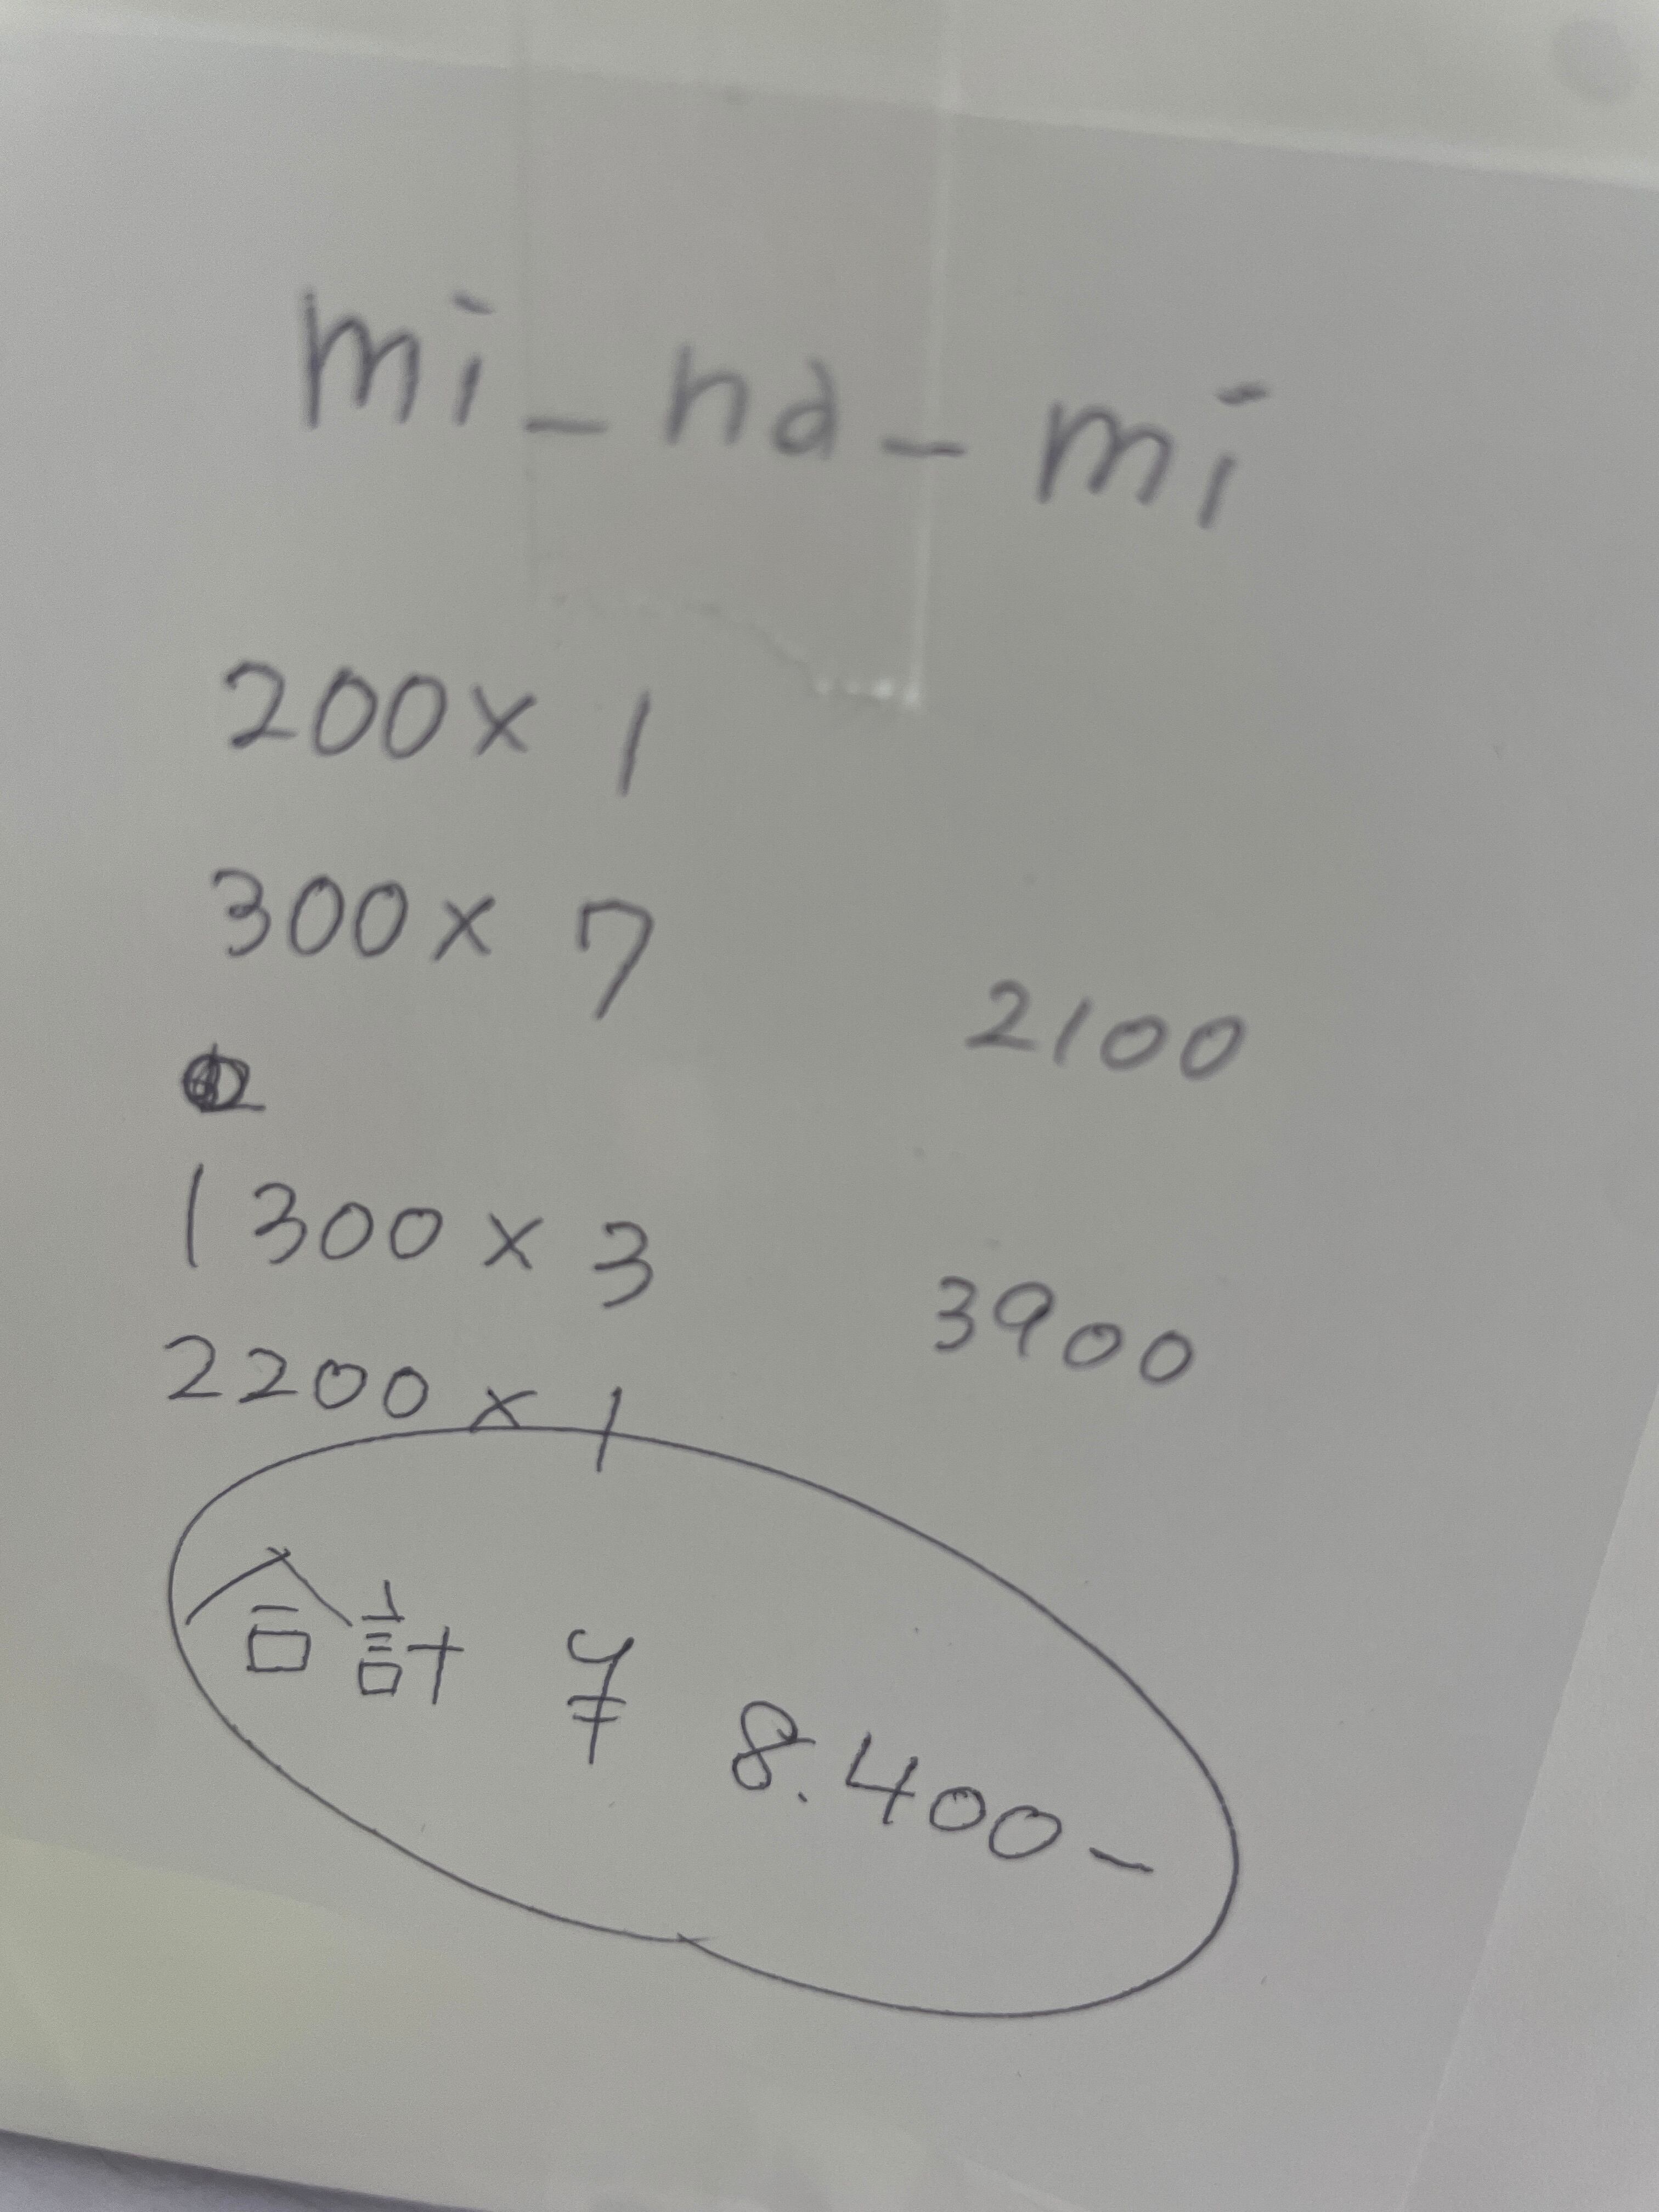 mi_na_mi
200× 1
300× 7
2100
1300× 3
3900
2200×1
合計 ¥ 8.400-